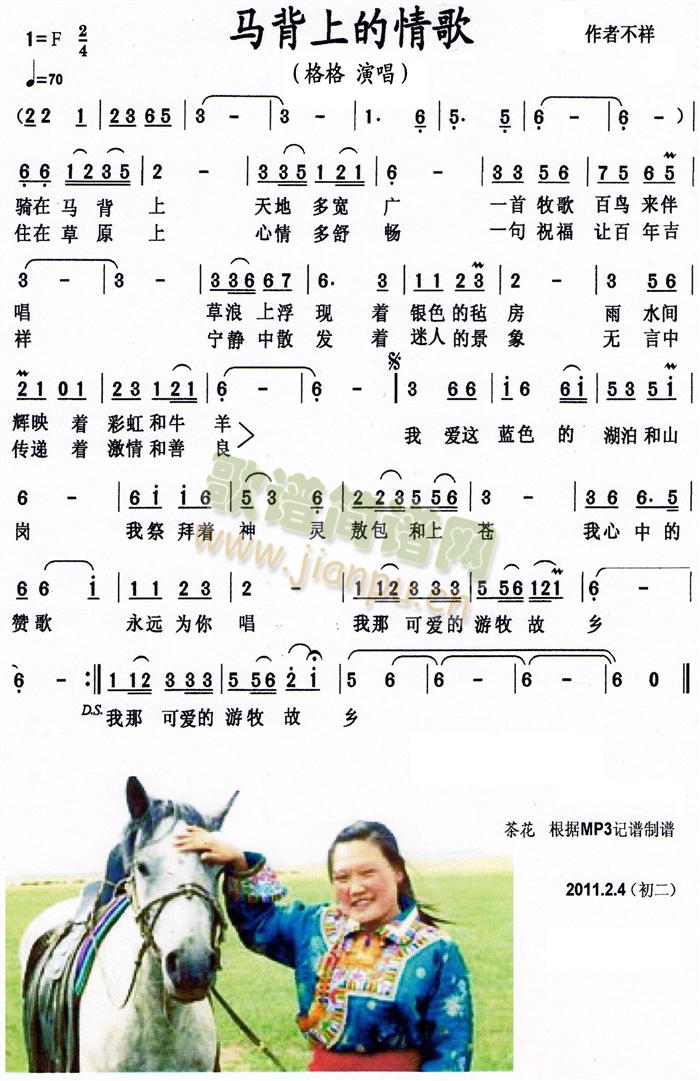 马背上的情歌
1=F 2/4
作者不祥
♩=70
（格格 演唱）
（2 2 1 | 2 3 6 5 | 3 - | 3 - | 1· 6 | 5· 5 | 6 - | 6 - ）|
6 6 1 2 3 5 | 2 - | 3 3 5 1 2 1 | 6 - | 3 3 5 6 | 7 5 6 5 |
骑在 马 背 上 天地 多宽 广 一首 牧歌 百鸟 来伴
住在 草 原 上 心情 多舒 畅 一句 祝福 让百 年吉
3 - | 3 - | 3 3 6 6 7 | 6· 3 | 1 1 2 3 | 2 - | 3 5 6 |
唱 草浪 上浮 现 着 银色 的毡 房 雨 水间
祥 宁静 中散 发 着 迷人 的景 象 无 言中
2 1 0 1 | 2 3 1 2 1 | 6 - | 6 - | 3 6 6 | i 6 6 i | 5 3 5 i |
辉映 着 彩虹 和牛 羊
传递 着 激情 和善 良
我 爱这 蓝色 的 湖泊 和山
6 - | 6 i i 6 | 5 3 6 | 2 2 3 5 5 6 | 3 - | 3 6 6· 5 |
岗 我祭 拜着 神 灵 敖包 和上 苍 我心 中的
6 6 i | 1 1 2 3 | 2 - | 1 1 2 3 3 3 | 5 5 6 1 2 1 | 6 - |
赞歌 永远 为你 唱 我那 可爱的 游牧 故 乡
6 - :‖ 1 1 2 3 3 3 | 5 5 6 2 i | 5 6 | 6 - | 6 - | 6 0 ‖
D.S. 我那 可爱的 游牧 故 乡
歌谱简谱网
www.jianpu.cn
茶花 根据MP3记谱制谱
2011.2.4（初二）